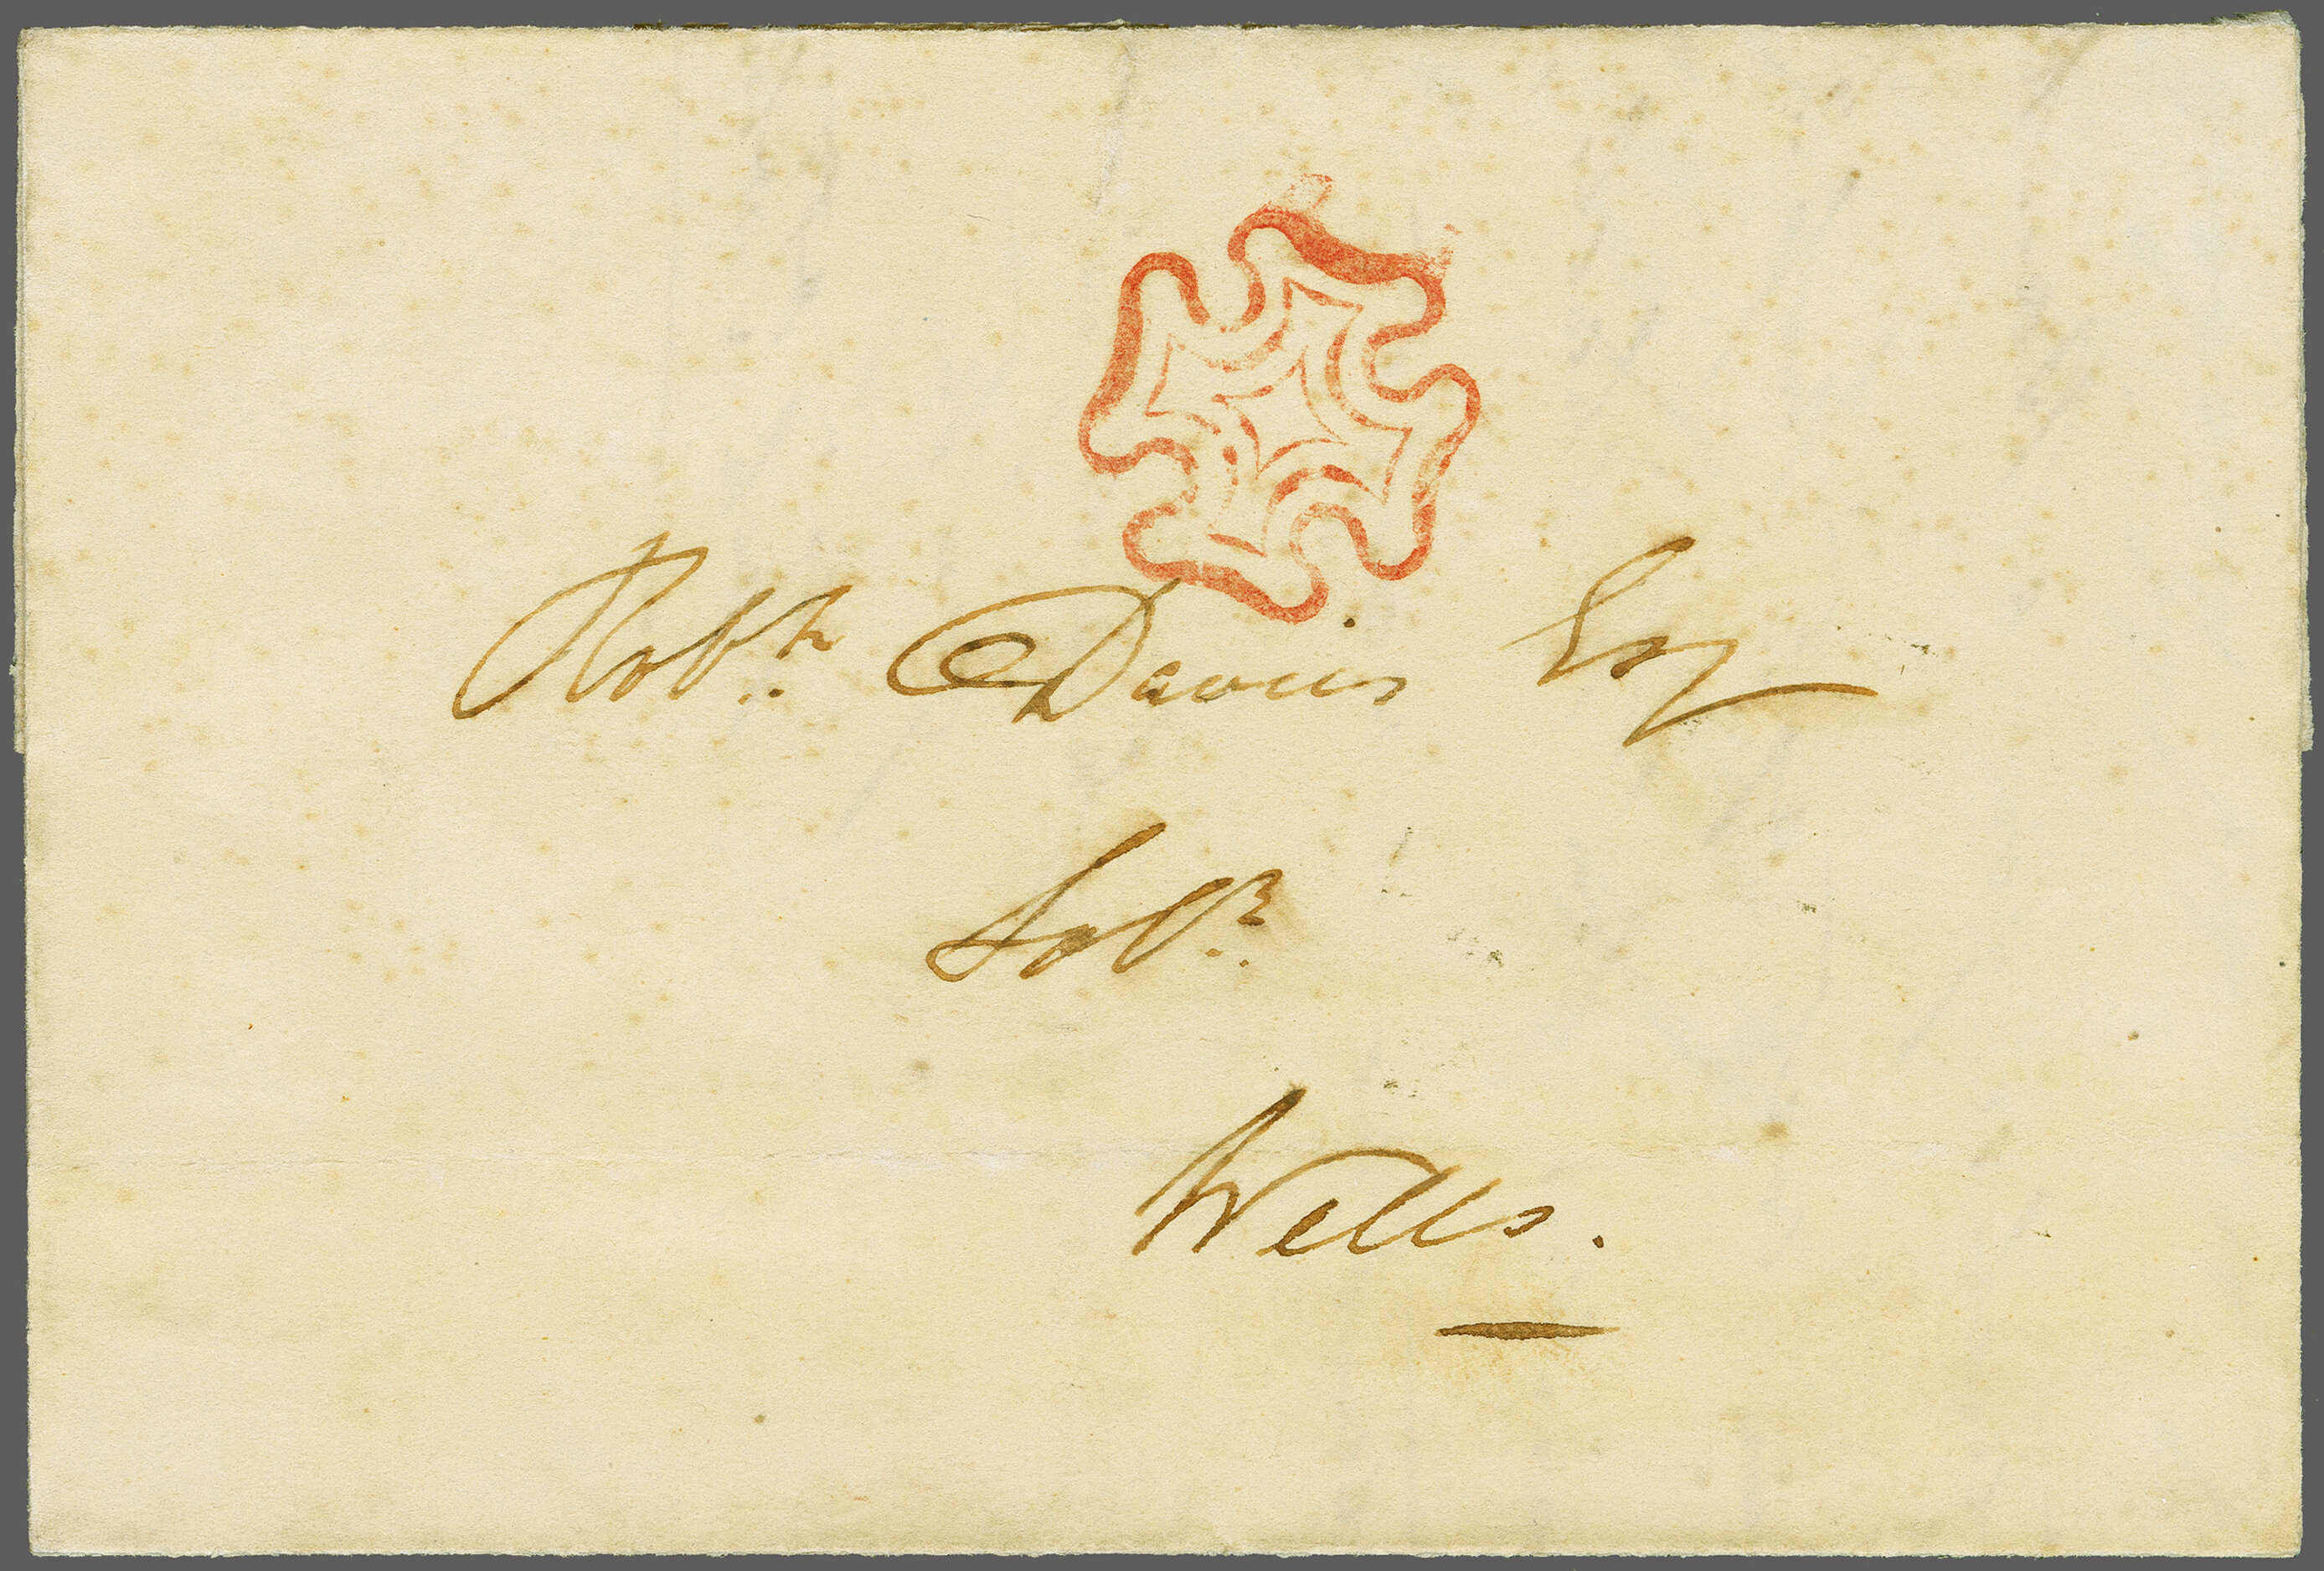 Robt. Davies Esq
Solr.
Wells.